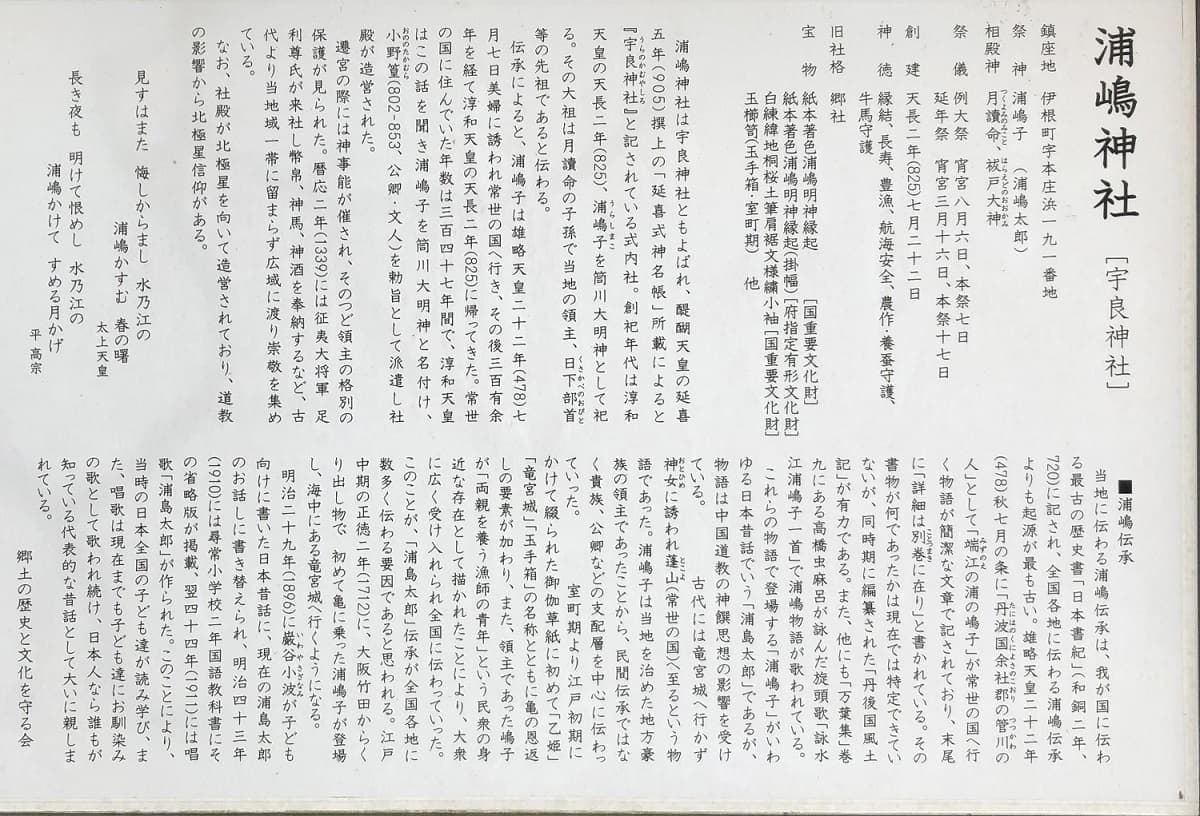 浦嶋神社 [宇良神社]
鎮座地 伊根町字本庄浜一九一番地
祭神 浦嶋子 (浦嶋太郎)
相殿神 月讀命、祓戸大神
つくよみのみこと はらえどのおおかみ
祭儀 例大祭 宵宮八月六日、本祭七日
延年祭 宵宮三月十六日、本祭十七日
創建 天長二年(825)七月二十二日
神徳 縁結、長寿、豊漁、航海安全、農作・養蚕守護、
牛馬守護
旧社格 郷社
宝物 紙本著色浦嶋明神縁起 [国重要文化財]
紙本著色浦嶋明神縁起(掛幅)[府指定有形文化財]
白練緯地桐桜土筆肩裾文様繍小袖[国重要文化財]
玉櫛笥(玉手箱・室町期) 他
浦嶋神社は宇良神社ともよばれ、醍醐天皇の延喜
五年(905)撰上の「延喜式神名帳」所載によると
『宇良神社』と記されている式内社。創祀年代は淳和
うらのかむやしろ
天皇の天長二年(825)、浦嶋子を筒川大明神として祀
うらしまこ
る。その大祖は月讀命の子孫で当地の領主、日下部首
くさかべのおびと
等の先祖であると伝わる。
伝承によると、浦嶋子は雄略天皇二十二年(478)七
月七日美婦に誘われ常世の国へ行き、その後三百有余
年を経て淳和天皇の天長二年(825)に帰ってきた。常世
の国に住んでいた年数は三百四十七年間で、淳和天皇
はこの話を聞き浦嶋子を筒川大明神と名付け、
小野篁(802-853、公卿・文人)を勅旨として派遣し社
おののたかむら
殿が造営された。
遷宮の際には神事能が催され、そのつど領主の格別の
保護が見られた。暦応二年(1339)には征夷大将軍 足
利尊氏が来社し幣帛、神馬、神酒を奉納するなど、古
代より当地域一帯に留まらず広域に渡り崇敬を集め
ている。
なお、社殿が北極星を向いて造営されており、道教
の影響から北極星信仰がある。
見すはまた 悔しからまし 水乃江の
浦嶋かすむ 春の曙
太上天皇
長き夜も 明けて恨めし 水乃江の
浦嶋かけて すめる月かげ
平 高宗
■浦嶋伝承
当地に伝わる浦嶋伝承は、我が国に伝わ
る最古の歴史書「日本書紀」(和銅二年、
720)に記され、全国各地に伝わる浦嶋伝承
よりも起源が最も古い。雄略天皇二十二年
(478)秋七月の条に「丹波国余社郡の管川の
たにはのくによさのこおり つつかわ
人」として「端江の浦の嶋子」が常世の国へ行
みずのえ
く物語が簡潔な文章で記されており、末尾
に「詳細は別巻に在り」と書かれている。その
ことつまき
書物が何であったかは現在では特定できてい
ないが、同時期に編纂された「丹後国風土
記」が有力である。また、他にも「万葉集」巻
九にある高橋虫麻呂が詠んだ旋頭歌「詠水
江浦嶋子一首」で浦嶋物語が歌われている。
これらの物語で登場する「浦嶋子」がいわ
ゆる日本昔話でいう「浦島太郎」であるが、
物語は中国道教の神饌思想の影響を受け
ている。 古代には竜宮城へ行かず
神女に誘われ蓬山(常世の国)へ至るという物
おとひめ とこよ
語であった。浦嶋子は当地を治めた地方豪
族の領主であったことから、民間伝承ではな
く貴族、公卿などの支配層を中心に伝わっ
ていった。 室町期より江戸初期に
かけて綴られた御伽草紙に初めて「乙姫」
「竜宮城」「玉手箱の名称とともに亀の恩返
しの要素が加わり、また、領主であった嶋子
が「両親を養う漁師の青年」という民衆の身
近な存在として描かれたことにより、大衆
に広く受け入れられ全国に伝わっていった。
このことが、「浦島太郎」伝承が全国各地に
数多く伝わる要因であると思われる。江戸
中期の正徳二年(1712)に、大阪竹田からく
り出し物で 初めて亀に乗った浦嶋子が登場
し、海中にある竜宮城へ行くようになる。
明治二十九年(1896)に巌谷小波が子ども
いわやさざなみ
向けに書いた日本昔話に、現在の浦島太郎
のお話しに書き替えられ、明治四十三年
(1910)には尋常小学校二年国語教科書にそ
の省略版が掲載、翌四十四年(1911)には唱
歌「浦島太郎」が作られた。このことにより、
当時の日本全国の子ども達が読み学び、ま
た、唱歌は現在までも子ども達にお馴染み
の歌として歌われ続け、日本人なら誰もが
知っている代表的な昔話として大いに親しま
れている。
郷土の歴史と文化を守る会